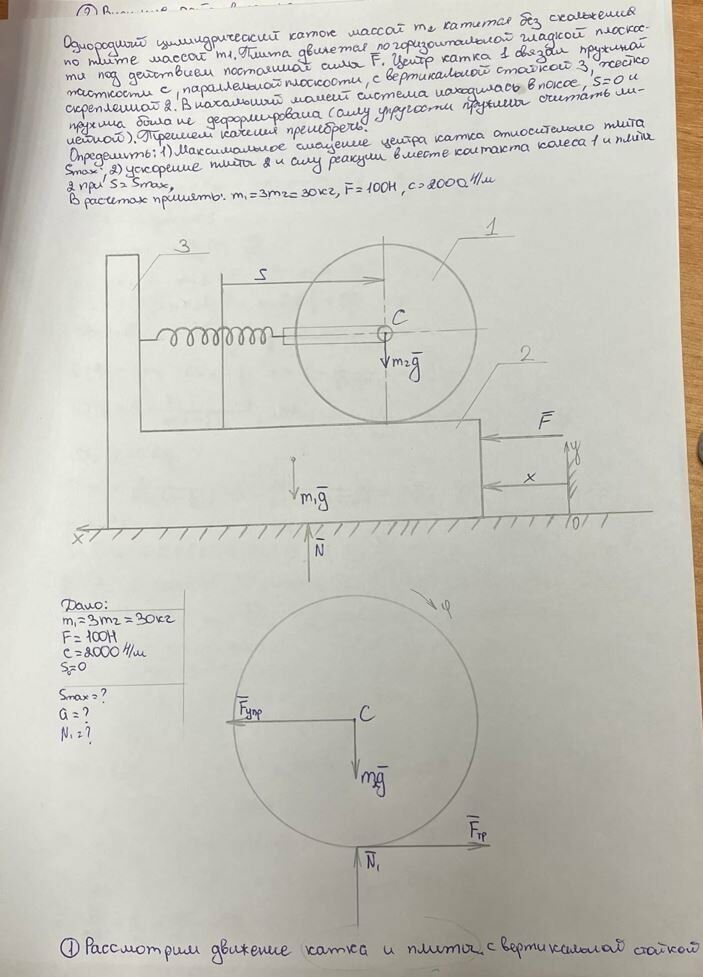 Однородный цилиндрический каток массой m₂ катится без скольжения
по плите массой m₁. Плита движется по горизонтальной гладкой плоскос-
ти под действием постоянной силы F̅. Центр катка 1 связан пружиной
жесткости c, параллельной плоскости, с вертикальной стойкой 3, жестко
скрепленной 2. В начальный момент система находилась в покое, S=0 и
пружина была не деформирована (силу упругости пружины считать ли-
нейной). Трением качения пренебречь.
Определить: 1) Максимальное смещение центра катка относительно плиты
Smax; 2) ускорение плиты 2 и силу реакции в месте контакта колеса 1 и плиты
2 при S=Smax,
В расчетах принять: m₁=3m₂=30кг, F̅=100Н, c=2000 Н/м
3
1
S
C
m₂g̅
2
F̅
y
x
m₁g̅
x
0
N̅
Дано:
m₁=3m₂=30кг
F=100Н
c=2000 Н/м
S₀=0
Smax=?
a=?
N₁=?
φ
F̅упр
C
m₂g̅
F̅тр
N̅₁
① Рассмотрим движение катка и плиты с вертикальной стойкой